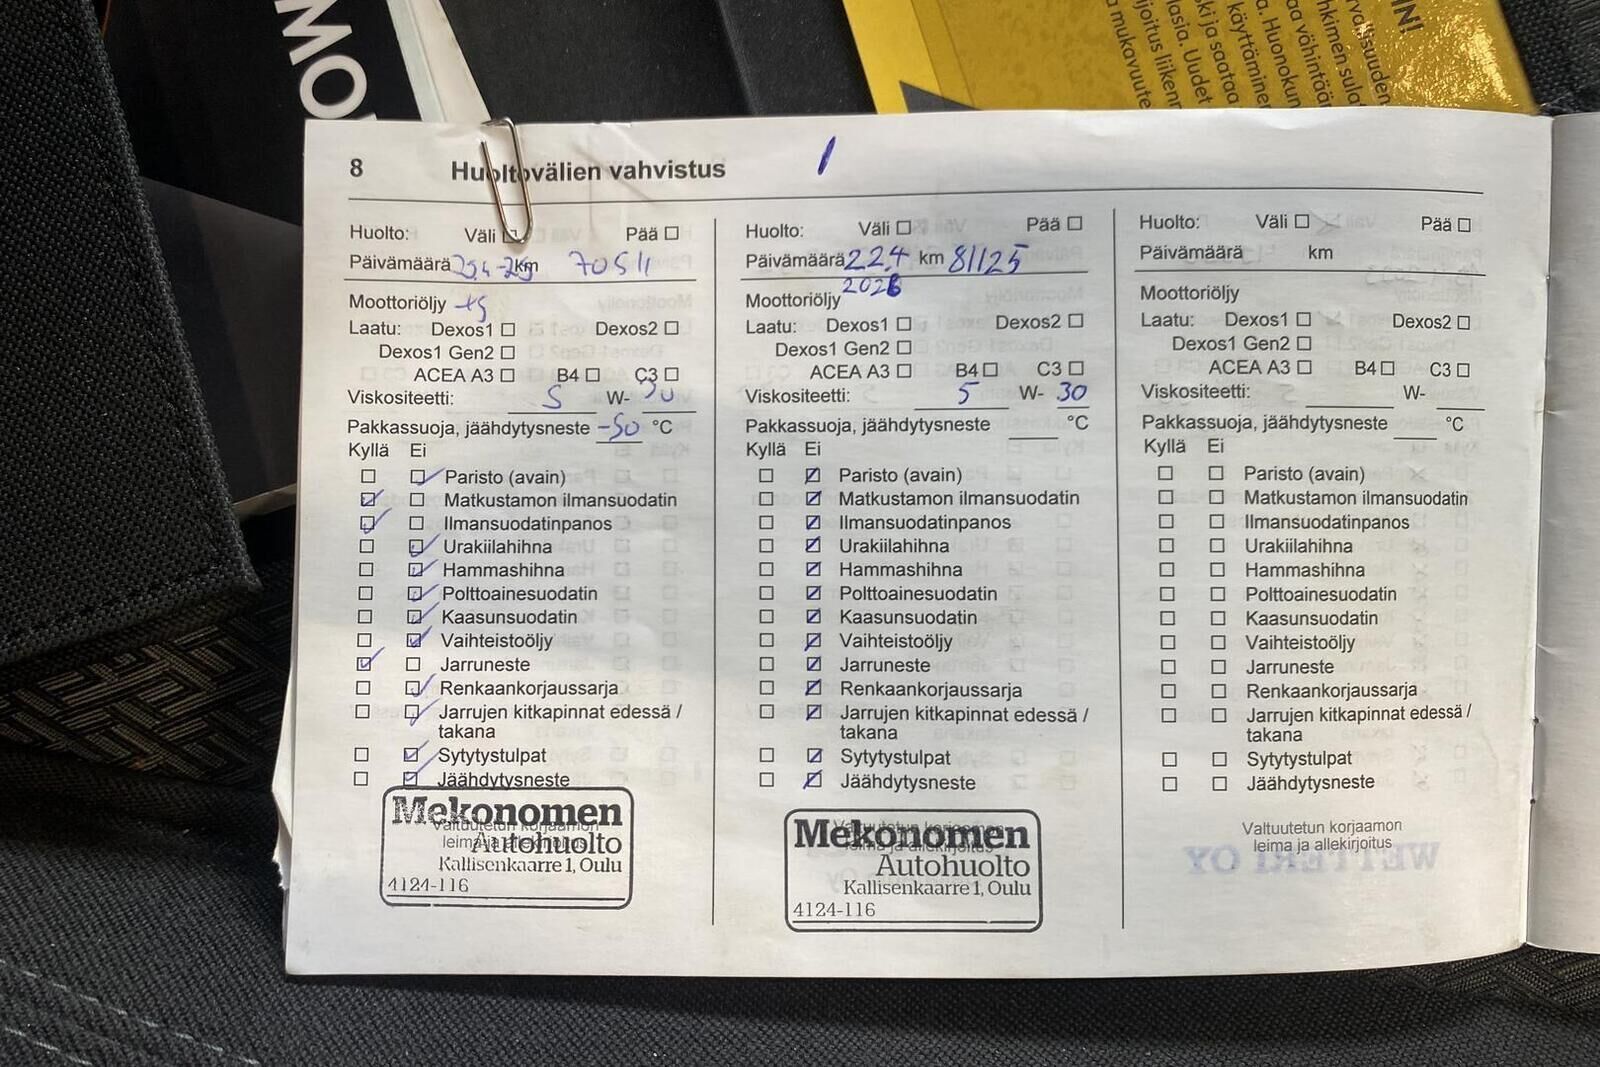 MO
IN!
8 Huoltovälien vahvistus
Huolto: Väli ☐ Pää ☐
Päivämäärä 25.4-25 km 70511
Moottoriöljy +s
Laatu: Dexos1 ☐ Dexos2 ☐
Dexos1 Gen2 ☐
ACEA A3 ☐ B4 ☐ C3 ☐
Viskositeetti: 5 W- 30
Pakkassuoja, jäähdytysneste -50 °C
Kyllä Ei
Paristo (avain)
Matkustamon ilmansuodatin
Ilmansuodatinpanos
Urakiilahihna
Hammashihna
Polttoainesuodatin
Kaasunsuodatin
Vaihteistoöljy
Jarruneste
Renkaankorjaussarja
Jarrujen kitkapinnat edessä /
takana
Sytytystulpat
Jäähdytysneste
Valtuutetun korjaamon
leima ja allekirjoitus
Mekonomen
Autohuolto
Kallisenkaarre 1, Oulu
4124-116
Huolto: Väli ☐ Pää ☐
Päivämäärä 22.4 km 81125
2026
Moottoriöljy
Laatu: Dexos1 ☐ Dexos2 ☐
Dexos1 Gen2 ☐
ACEA A3 ☐ B4 ☐ C3 ☐
Viskositeetti: 5 W- 30
Pakkassuoja, jäähdytysneste °C
Kyllä Ei
Paristo (avain)
Matkustamon ilmansuodatin
Ilmansuodatinpanos
Urakiilahihna
Hammashihna
Polttoainesuodatin
Kaasunsuodatin
Vaihteistoöljy
Jarruneste
Renkaankorjaussarja
Jarrujen kitkapinnat edessä /
takana
Sytytystulpat
Jäähdytysneste
Valtuutetun korjaamon
leima ja allekirjoitus
Mekonomen
Autohuolto
Kallisenkaarre 1, Oulu
4124-116
Huolto: Väli ☐ Pää ☐
Päivämäärä km
Moottoriöljy
Laatu: Dexos1 ☐ Dexos2 ☐
Dexos1 Gen2 ☐
ACEA A3 ☐ B4 ☐ C3 ☐
Viskositeetti: W-
Pakkassuoja, jäähdytysneste °C
Kyllä Ei
Paristo (avain)
Matkustamon ilmansuodatin
Ilmansuodatinpanos
Urakiilahihna
Hammashihna
Polttoainesuodatin
Kaasunsuodatin
Vaihteistoöljy
Jarruneste
Renkaankorjaussarja
Jarrujen kitkapinnat edessä /
takana
Sytytystulpat
Jäähdytysneste
Valtuutetun korjaamon
leima ja allekirjoitus
WETTERI OY